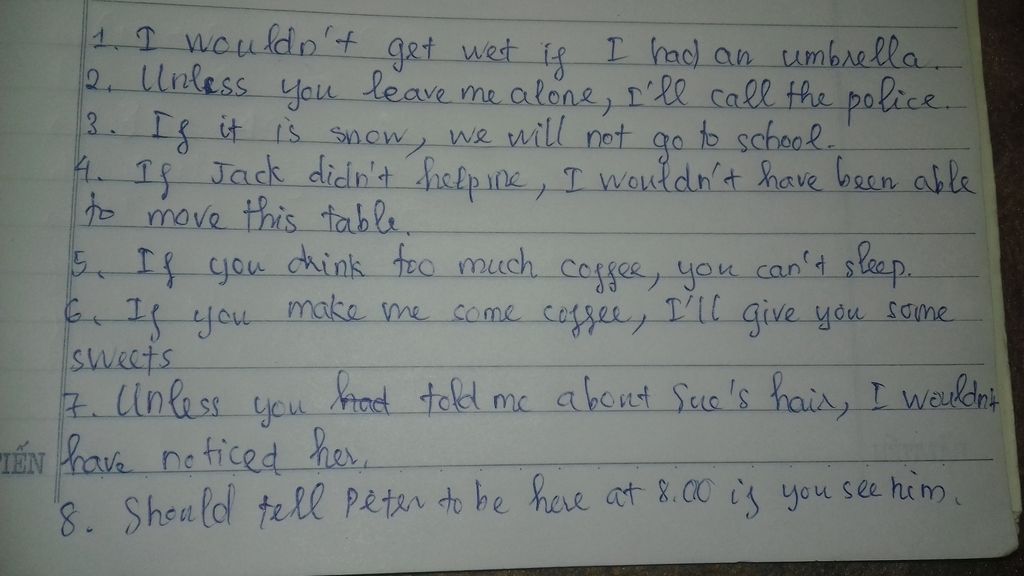 1. I wouldn't get wet if I had an umbrella.
2. Unless you leave me alone, I'll call the police.
3. If it is snow, we will not go to school.
4. If Jack didn't help me, I wouldn't have been able
to move this table.
5. If you drink too much coffee, you can't sleep.
6. If you make me some coffee, I'll give you some
sweets
7. Unless you had told me about Sue's hair, I wouldn't
IẾN have noticed her.
8. Should tell Peter to be here at 8.00 if you see him.